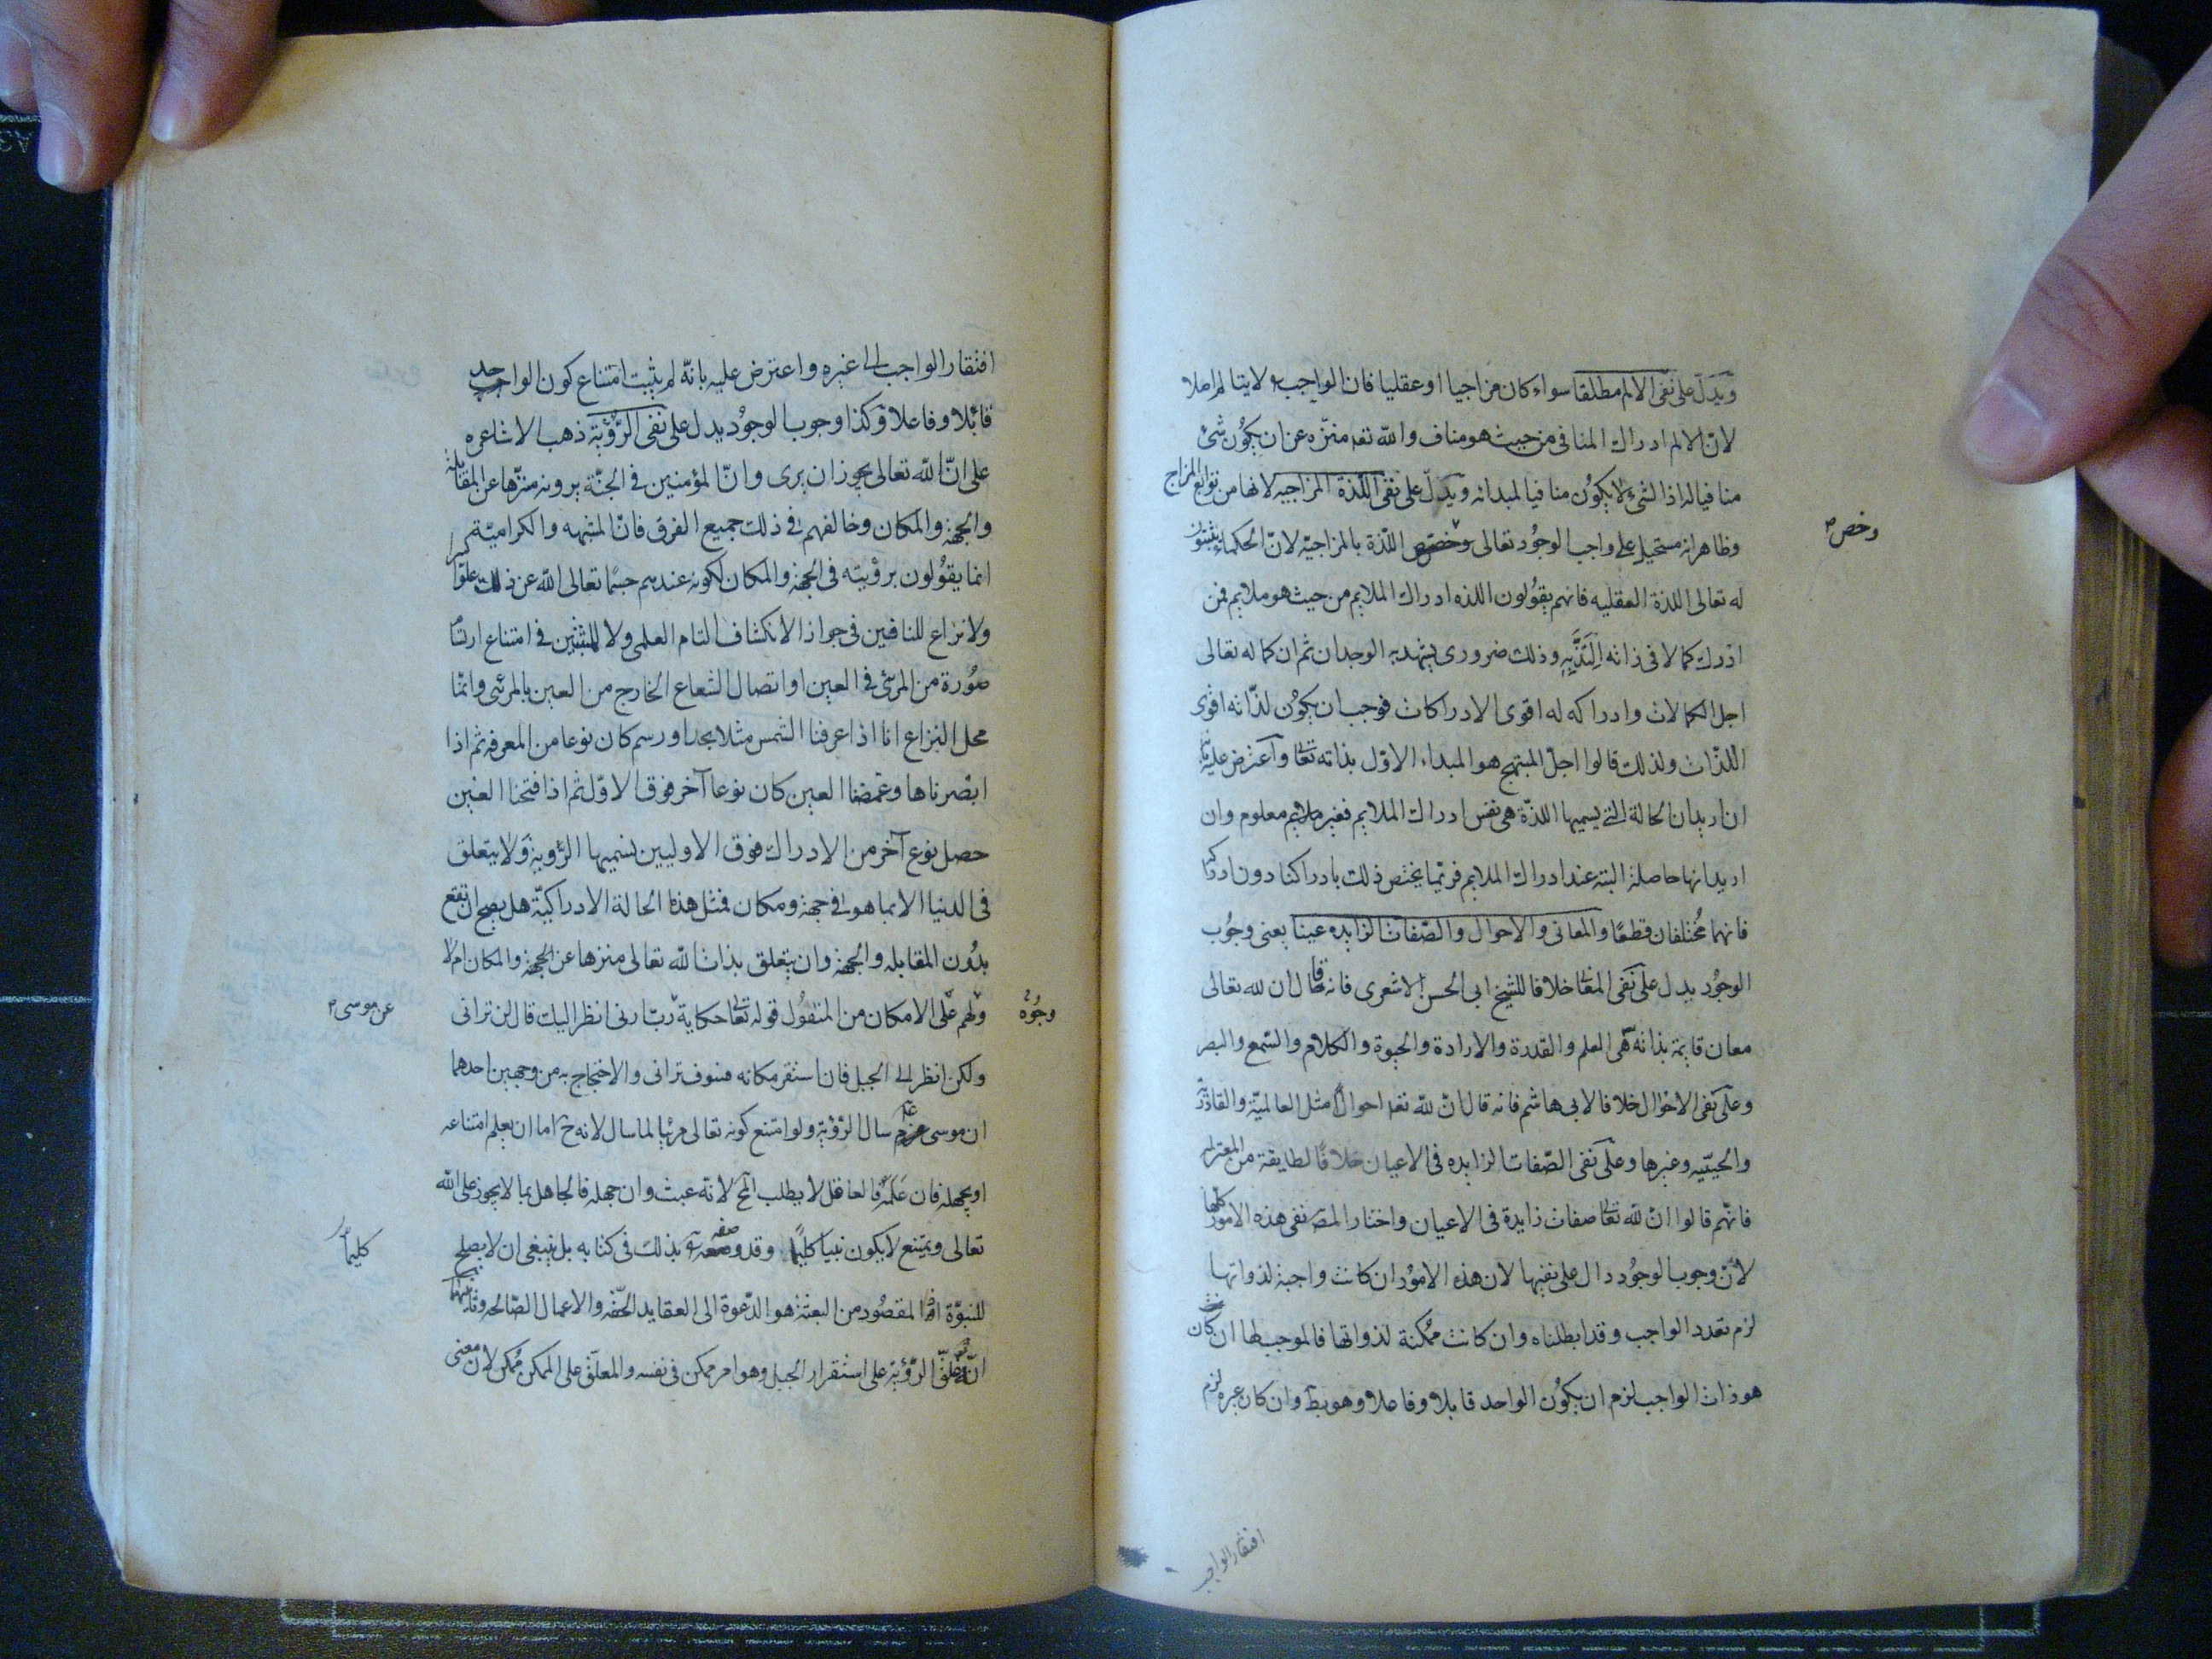 ويدل على نفى الالم مطلقا سواء كان مزاجيا او عقليا فان الواجب لا يتالم اصلا
لان الالم ادراك المنافى من حيث هو مناف والله تعه منزه عن ان يكون شئ
منافيا له اذ الشئ لا يكون منافيا لمبدائه ويدل على نفى اللذة المزاجيه لانها من توابع المزاج
وظاهر انه مستحيل على واجب الوجود تعالى وخصص اللذة بالمزاجية لان الحكماء يثبتون
وخص
له تعالى اللذة العقليه فانهم يقولون اللذه ادراك الملايم من حيث هو ملايم فمن
ادرك كمالا فى ذاته التذ به وذلك ضرورى يشهد به الوجدان ثم ان كماله تعالى
اجل الكمالات وادراكه له اقوى الادراكات فوجب ان يكون لذاته اقوى
اللذات ولذلك قالوا اجل المبتهج هو المبداء الاول بذاته تعالى واعترض عليه بانه
ان اريد ان الحالة التى يسميها اللذة هى نفس ادراك الملايم فغير ملايم معلوم وان
اريد انها حاصلة البته عند ادراك الملايم فربما يختص ذلك بادراكنا دون ادراكه
فانهما مختلفان قطعا والمعانى والاحوال والصفات الزايده عينا يعنى وجوب
الوجود يدل على نفى المعانى خلافا للشيخ ابى الحسن الاشعرى فانه قال ان لله تعالى
معان قايمة بذاته هى العلم والقدرة والارادة والحيوة والكلام والسمع والبصر
وعلى نفى الاحوال خلافا لابى هاشم فانه قال ان لله تعه احوالا مثل العالمية والقادرية
والحييه وغيرها وعلى نفى الصفات الزايده فى الاعيان خلافا لطايفة من المعتزله
فانهم قالوا ان لله تعالى صفات زايدة فى الاعيان واختار المصـ نفى هذه الامور كلها
لان وجوب الوجود دال على نفيها لان هذه الامور ان كانت واجبة لذواتها
لزم تعدد الواجب وقد ابطلناه وان كانت ممكنة لذواتها فالموجب لها ان كان
هو ذات الواجب لزم ان يكون الواحد قابلا وفاعلا وهو بط وان كان غيره لزم
افتقار الواجب
افتقار الواجب الى غيره واعترض عليه بانه لم يثبت امتناع كون الواحد
قابلا وفاعلا وكذا وجوب الوجود يدل على نفى الرؤية ذهب الاشاعره
على ان الله تعالى يجوز ان يرى وان المؤمنين فى الجنة يرونه منزها عن المقابلة
والجهة والمكان وخالفهم فى ذلك جميع الفرق فان المشبهه والكرامية
انما يقولون برؤيته فى الجهة والمكان لكونه عندهم جسما تعالى الله عن ذلك علوا كبيرا
ولا نزاع للنافين فى جواز الانكشاف التام العلمى ولا للمثبتين فى امتناع ارتسام
صورة من المرئى فى العين او اتصال الشعاع الخارج من العين بالمرئى وانما
محل النزاع انا اذا عرفنا الشمس مثلا بحد او رسم كان نوعا من المعرفه ثم اذا
ابصرناها وغمضنا العين كان نوعا آخر فوق الاول ثم اذا فتحنا العين
حصل نوع آخر من الادراك فوق الاوليين نسميها الرؤية ولا يتعلق
فى الدنيا الا بما هو فى جهة ومكان فمثل هذه الحالة الادراكية هل يصح ان تقع
بدون المقابله والجهة وان يتعلق بذات الله تعالى منزها عن الجهة والمكان ام لا
ولهم على الامكان من المنقول قوله تعالى حكاية رب ارنى انظر اليك قال لن ترانى
وجوه
عن موسى
ولكن انظر الى الجبل فان استقر مكانه فسوف ترانى والاحتجاج به من وجهين احدهما
ان موسى سال الرؤية ولو امتنع كونه تعالى مرئيا لما سال لانه ح اما ان يعلم امتناعه
او يجهله فان علمه فالعاقل لا يطلب المح لانه عبث وان جهله فالجاهل بما لا يجوز على الله
تعالى ويمتنع لا يكون نبيا كليما وقد وصفه بذلك فى كتابه بل ينبغى ان لا يصلح
كليما
للنبوة اذ المقصود من البعثة هو الدعوة الى العقايد الحقه والاعمال الصالحه وثانيهما
انه علق الرؤية على استقرار الجبل وهو امر ممكن فى نفسه والمعلق على الممكن ممكن لان معنى